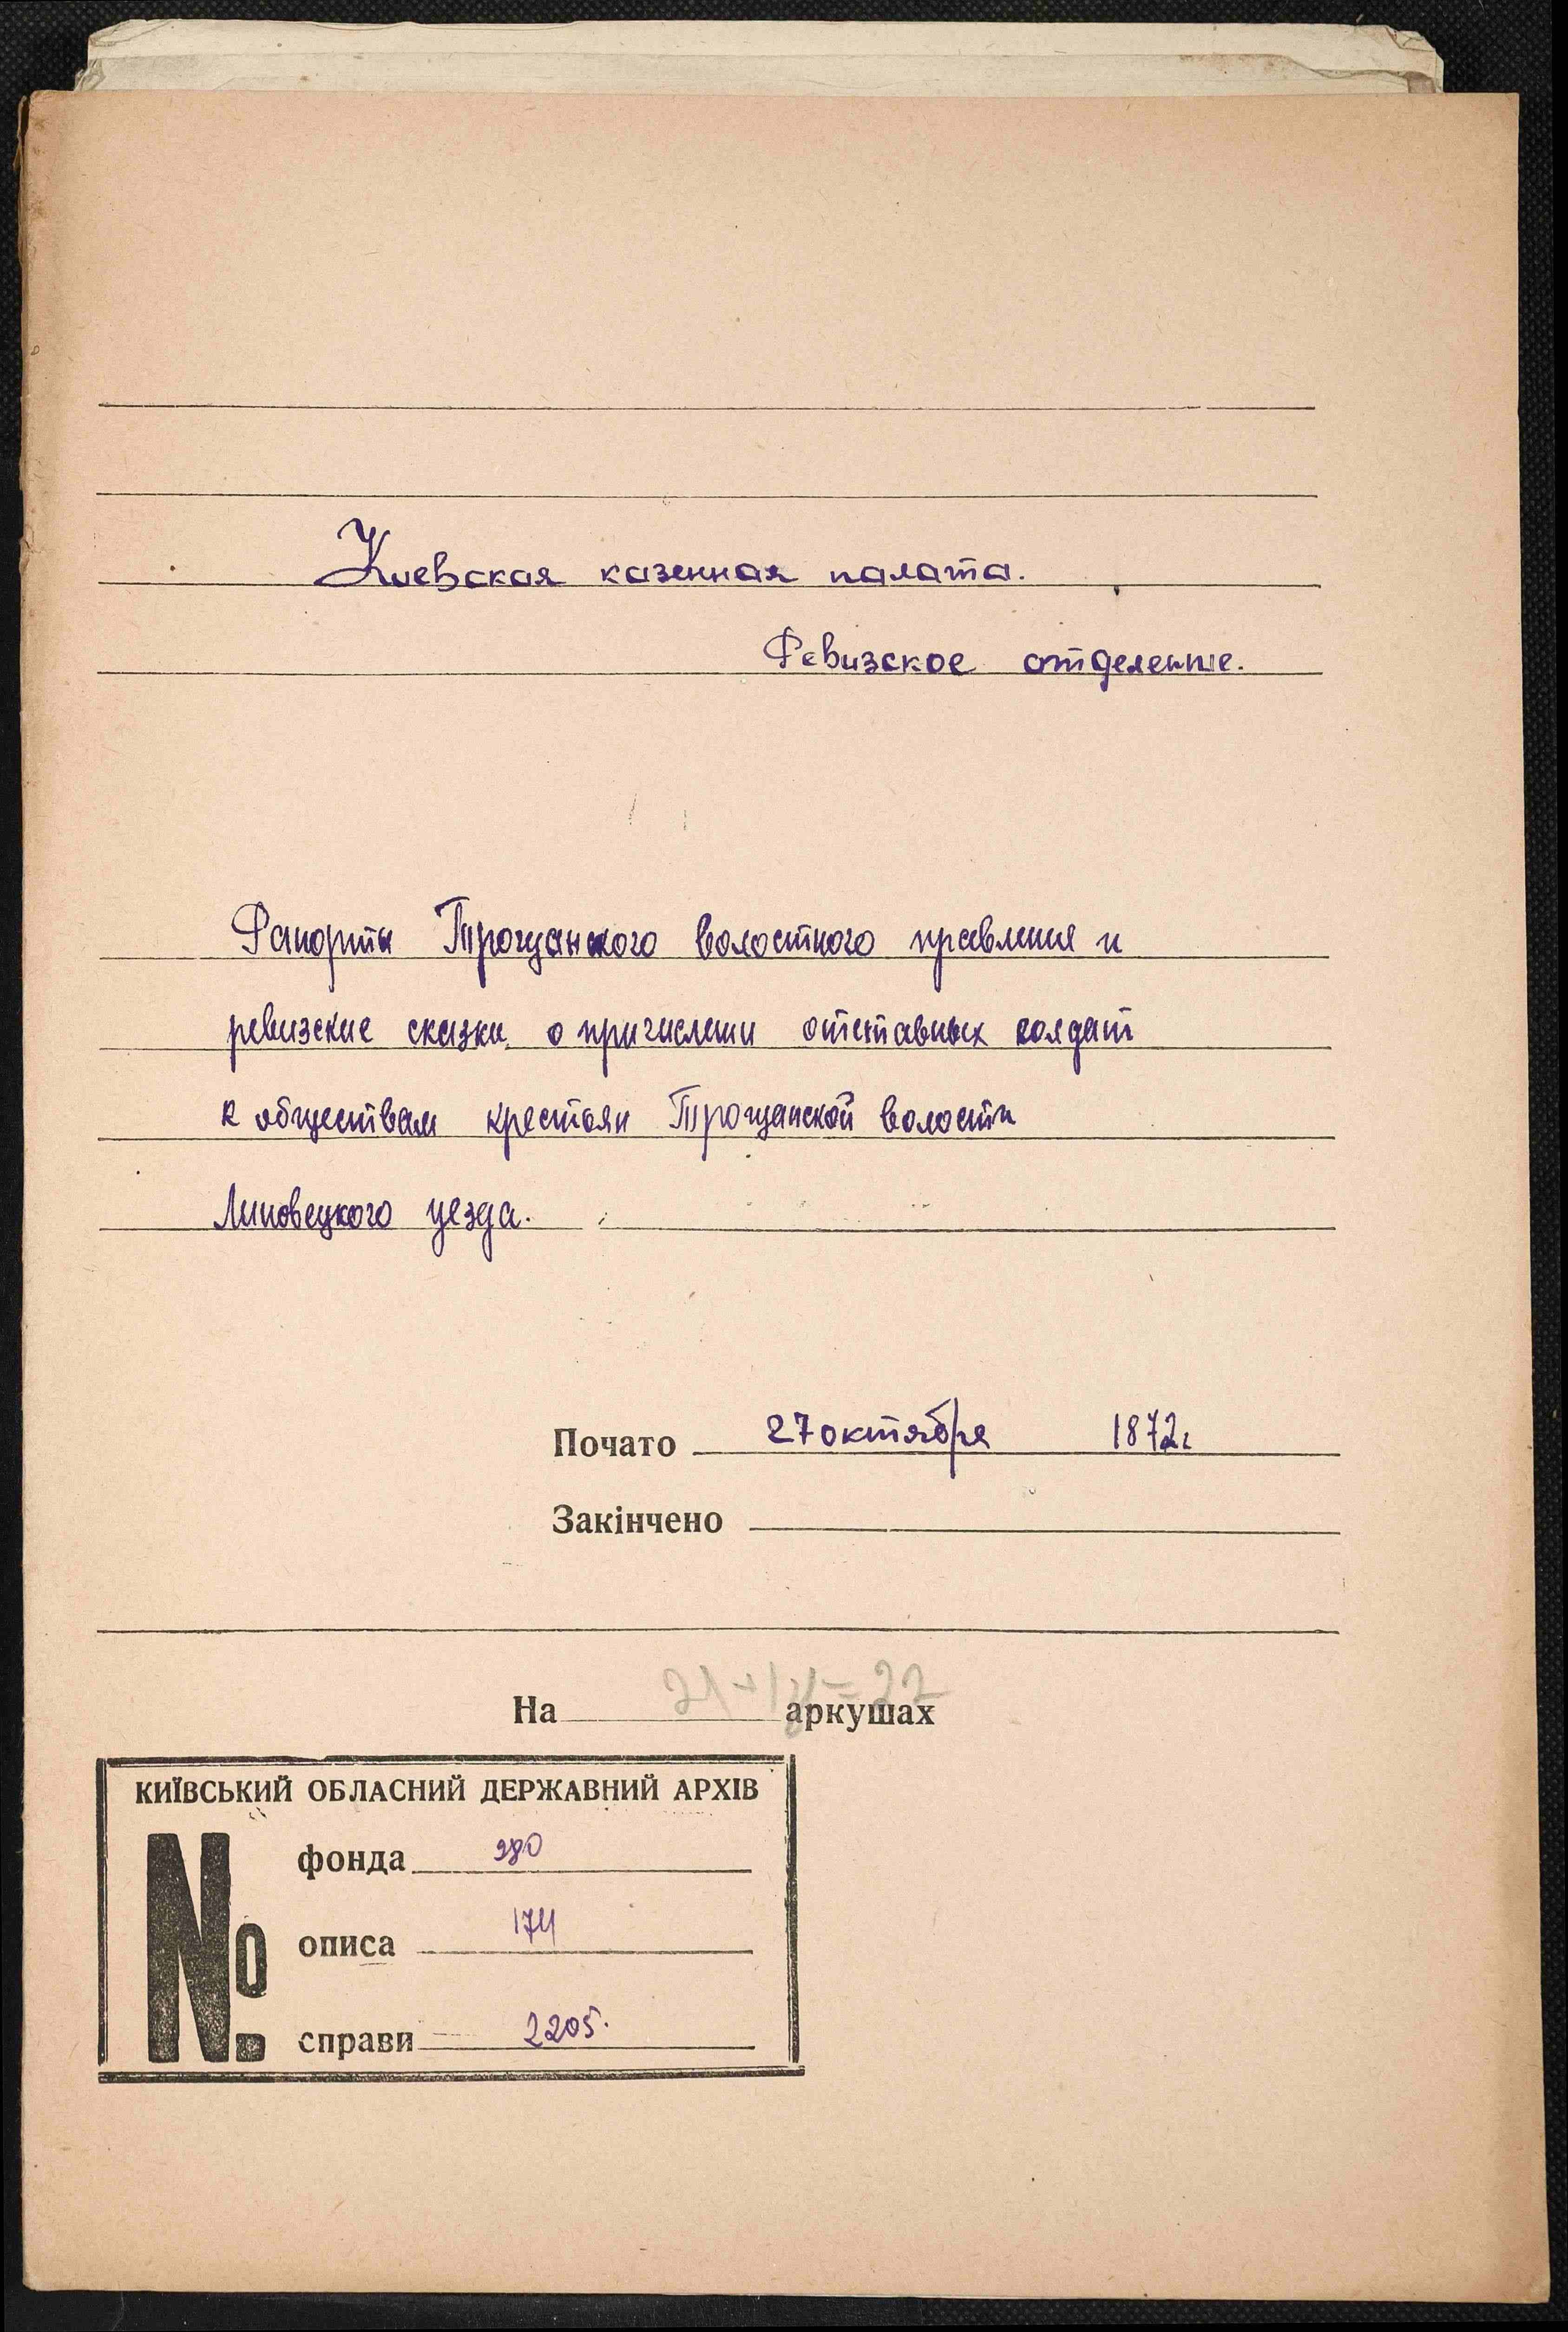 Киевская казенная палата.
Ревизское отделение.
Рапорты Трощанского волостного правления и
ревизские сказки о причислении отставных солдат
к обществам крестьян Трощанской волости
Липовецкого уезда.
Почато 27 октября 1872г
Закінчено
На 21+1=22 аркушах
КИЇВСЬКИЙ ОБЛАСНИЙ ДЕРЖАВНИЙ АРХІВ
№
фонда 280
описа 174
справи 2205.